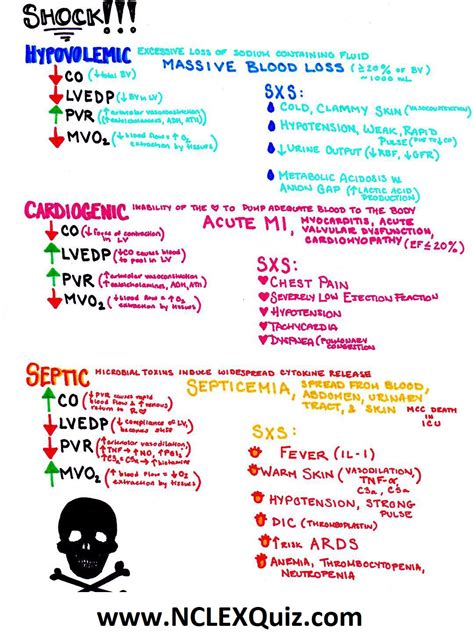 SHOCK!!!
HYPOVOLEMIC EXCESSIVE LOSS OF SODIUM CONTAINING FLUID
MASSIVE BLOOD LOSS (≥20% OF BV)
~1000 mL
↓CO (↓total BV)
↓LVEDP (↓BV in LV)
↑PVR (↑arteriolar vasoconstriction)
(↑catecholamines, ADH, ATII)
↓MVO₂ (↓blood flow = ↑O₂
extraction by tissues)
SXS:
COLD, CLAMMY SKIN (VASOCONSTRICTION)
HYPOTENSION, WEAK, RAPID
PULSE (DUE TO ↓CO)
↓URINE OUTPUT (↓RBF, ↓GFR)
METABOLIC ACIDOSIS W/
ANION GAP (↑LACTIC ACID
PRODUCTION)
CARDIOGENIC INABILITY OF THE ♡ TO PUMP ADEQUATE BLOOD TO THE BODY
ACUTE MI, MYOCARDITIS, ACUTE
VALVULAR DYSFUNCTION,
CARDIOMYOPATHY (EF≤20%)
↓CO (↓force of contraction
in LV)
↑LVEDP (↓CO causes blood
to pool in LV)
↑PVR (↑arteriolar vasoconstriction)
(↑catecholamines, ADH, ATII)
↓MVO₂ (↓blood flow = ↑O₂
extraction by tissues)
SXS:
♥CHEST PAIN
♥SEVERELY LOW EJECTION FRACTION
♥HYPOTENSION
♥TACHYCARDIA
♥DYSPNEA (PULMONARY
CONGESTION)
SEPTIC MICROBIAL TOXINS INDUCE WIDESPREAD CYTOKINE RELEASE
SEPTICEMIA, SPREAD FROM BLOOD,
ABDOMEN, URINARY
TRACT, & SKIN MCC DEATH
IN
ICU
↑CO (↓PVR causes rapid
blood flow & ↑venous
return to R♡)
↓LVEDP (↓compliance of LV,
becomes stiff)
↓PVR (↑arteriolar vasodilation)
(↑TNF → ↑NO, ↑PGI₂)
↑C3a, C5a → ↑histamine
↑MVO₂ (↑blood flow = ↓O₂
extraction by tissues)
SXS:
FEVER (IL-1)
WARM SKIN (VASODILATION,
TNF-α,
C3a, C5a)
HYPOTENSION, STRONG
PULSE
DIC (THROMBOPLASTIN)
↑RISK ARDS
ANEMIA, THROMBOCYTOPENIA,
NEUTROPENIA
www.NCLEXQuiz.com